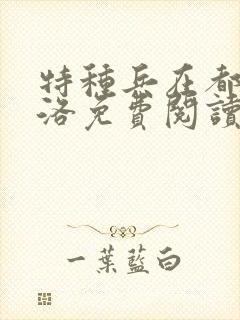 特種兵在都
洛免費閱讀
一葉藍白